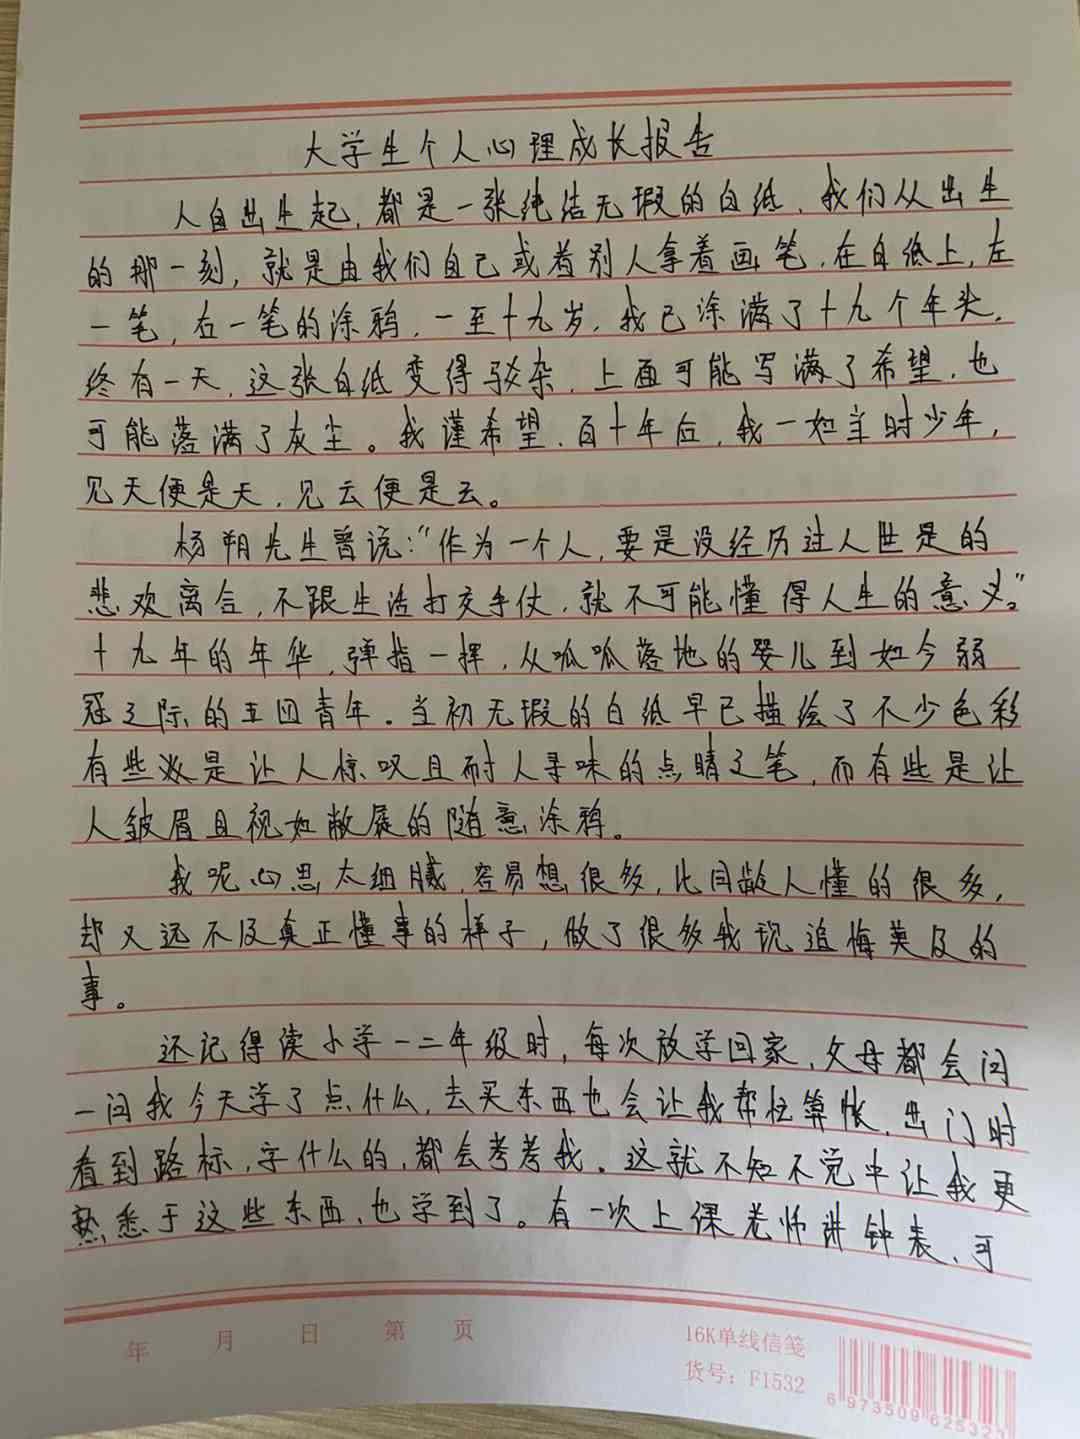 大学生个人心理成长报告
人自出生起，都是一张纯洁无瑕的白纸，我们从出生
的那一刻，就是由我们自己或者别人拿着画笔，在白纸上，左
一笔，右一笔的涂鸦，一至十九岁，我已涂满了十九个年头，
终有一天，这张白纸变得驳杂，上面可能写满了希望，也
可能落满了灰尘。我谨希望，百十年后，我一如当时少年，
见天便是天，见云便是云。
杨朔先生曾说：“作为一个人，要是没经历过人世是的
悲欢离合，不跟生活打交手仗，就不可能懂得人生的意义。”
十九年的年华，弹指一挥，从呱呱落地的婴儿到如今弱
冠之际的五四青年。当初无瑕的白纸早已描绘了不少色彩
有些这是让人惊叹且耐人寻味的点睛之笔，而有些是让
人皱眉且视如敝屣的随意涂鸦。
我呢心思太细腻，容易想很多，比同龄人懂的很多，
却又远不及真正懂事的样子，做了很多我现追悔莫及的
事。
还记得读小学一二年级时，每次放学回家，父母都会问
一问我今天学了点什么，去买东西也会让我帮忙算帐，出门时
看到路标，字什么的，都会考考我。这就不知不觉中让我更
熟悉于这些东西，也学到了。有一次上课老师讲钟表，可
年 月 日 第 页
16K单线信笺
货号：F1532
6 973509 625321